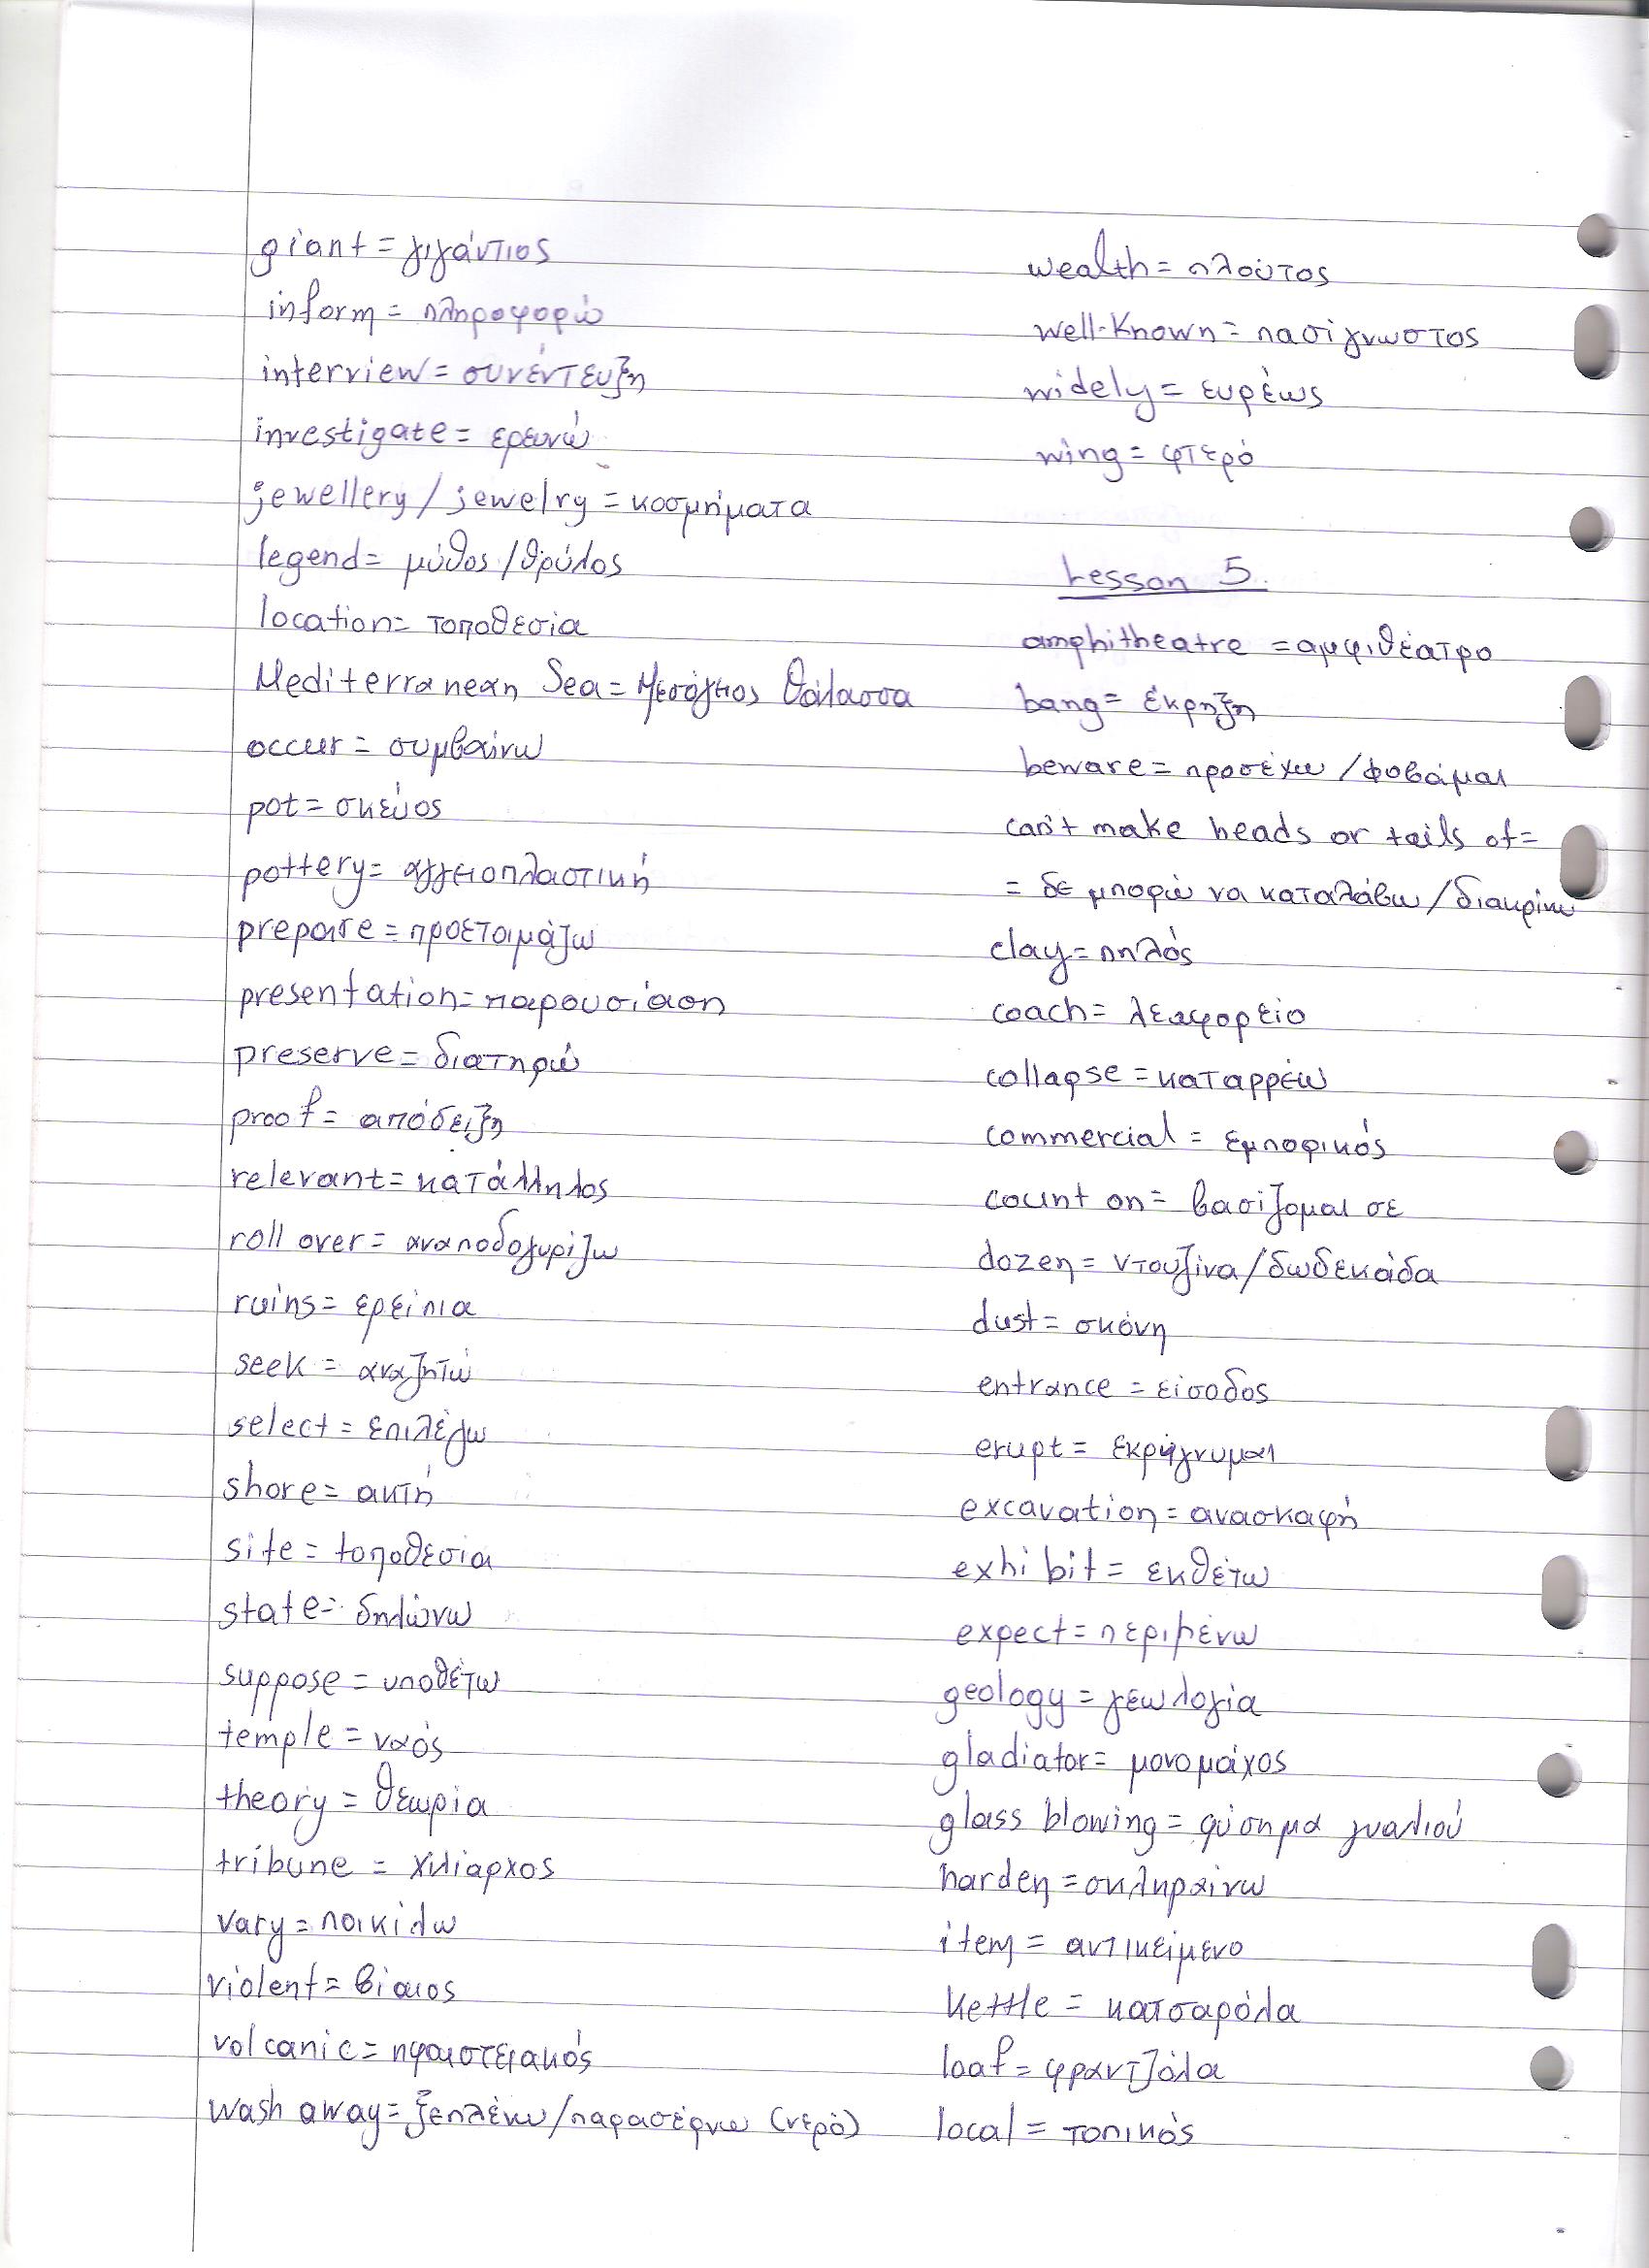 giant = γιγάντιος
inform = πληροφορώ
interview = συνέντευξη
investigate = ερευνώ
jewellery / jewelry = κοσμήματα
legend = μύθος / θρύλος
location = τοποθεσία
Mediterranean Sea = Μεσόγειος Θάλασσα
occur = συμβαίνω
pot = σκεύος
pottery = αγγειοπλαστική
prepare = προετοιμάζω
presentation = παρουσίαση
preserve = διατηρώ
proof = απόδειξη
relevant = κατάλληλος
roll over = αναποδογυρίζω
ruins = ερείπια
seek = αναζητώ
select = επιλέγω
shore = ακτή
site = τοποθεσία
state = δηλώνω
suppose = υποθέτω
temple = ναός
theory = θεωρία
tribune = χιλίαρχος
vary = ποικίλω
violent = βίαιος
volcanic = ηφαιστειακός
wash away = ξεπλένω / παρασέρνω (νερό)
wealth = πλούτος
well-known = πασίγνωστος
widely = ευρέως
wing = φτερό
Lesson 5.
amphitheatre = αμφιθέατρο
bang = έκρηξη
beware = προσέχω / φοβάμαι
can't make heads or tails of =
= δε μπορώ να καταλάβω / διακρίνω
clay = πηλός
coach = λεωφορείο
collapse = καταρρέω
commercial = εμπορικός
count on = βασίζομαι σε
dozen = ντουζίνα / δωδεκάδα
dust = σκόνη
entrance = είσοδος
erupt = εκρήγνυμαι
excavation = ανασκαφή
exhibit = εκθέτω
expect = περιμένω
geology = γεωλογία
gladiator = μονομάχος
glass blowing = φύσημα γυαλιού
harden = σκληραίνω
item = αντικείμενο
kettle = κατσαρόλα
loaf = φραντζόλα
local = τοπικός